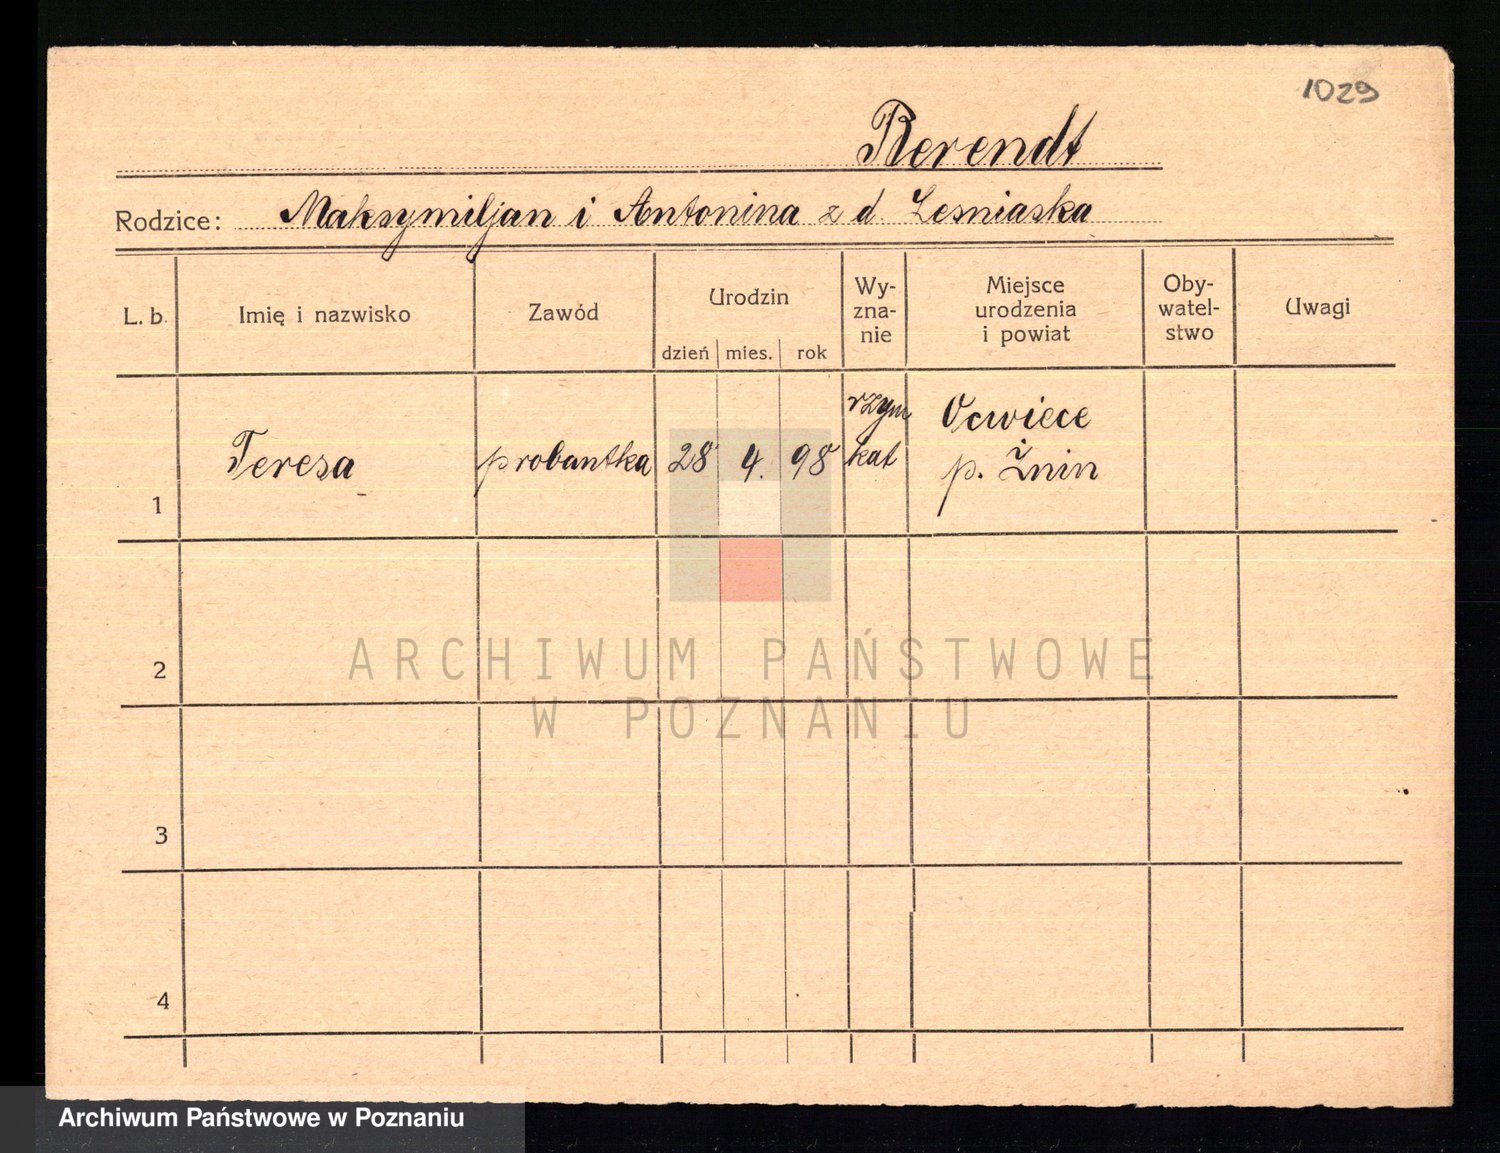 1029
Berendt
Rodzice: Maksymiljan i Antonina z d. Lesniaska
L. b. Imię i nazwisko Zawód Urodzin dzień mies. rok Wy-zna-nie Miejsce urodzenia i powiat Oby-watel-stwo Uwagi
1 Teresa probantka 28 4. 98 rzym kat Ocwiece p. Żnin
2
ARCHIWUM PAŃSTWOWE
W POZNANIU
3
4
Archiwum Państwowe w Poznaniu